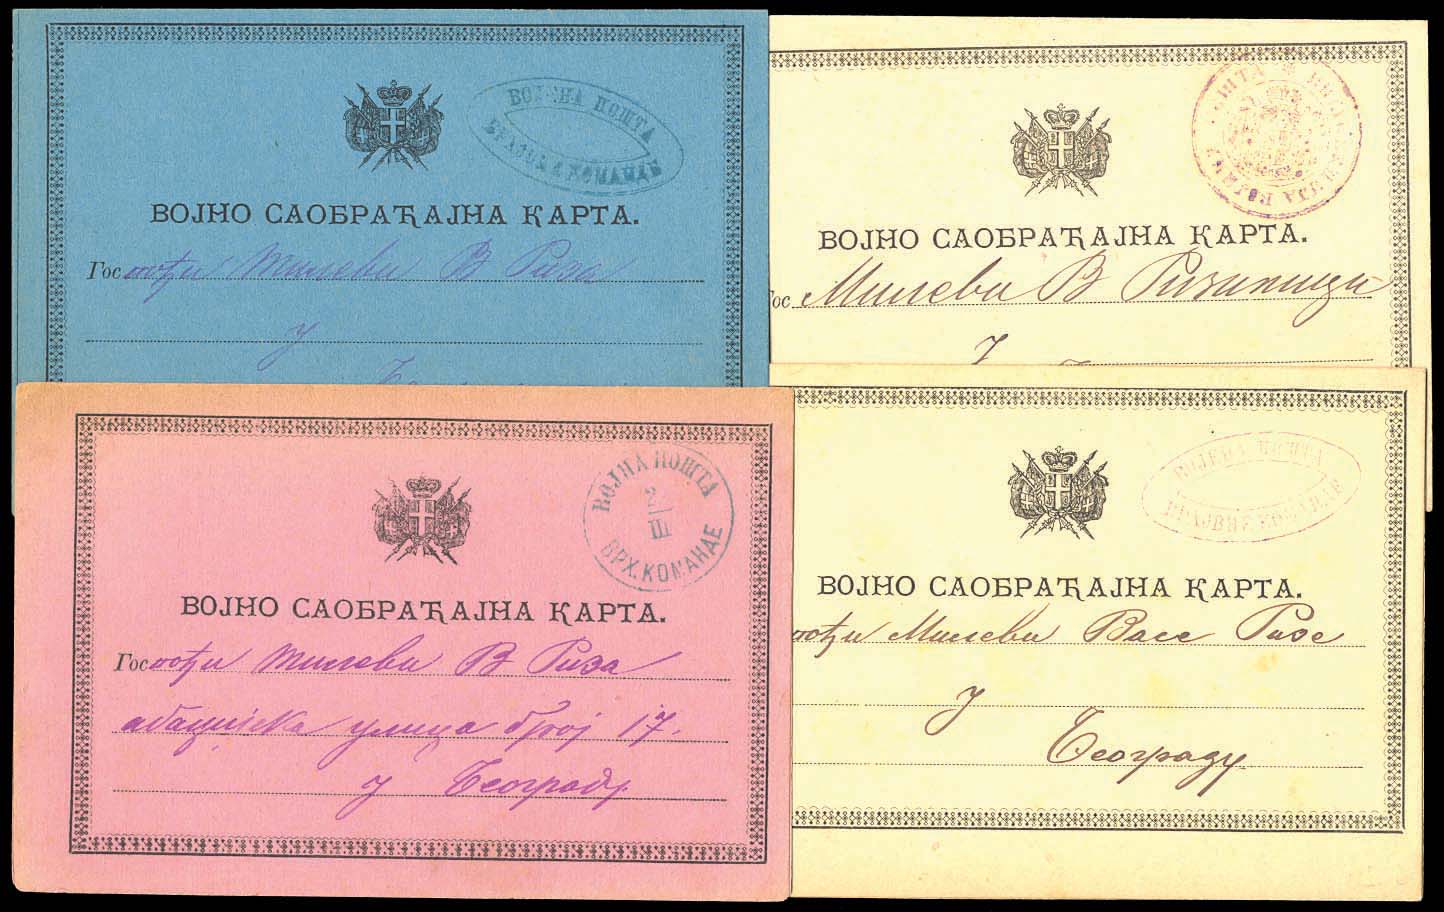 ВОЈЕНА ПОШТА
ВРХОВНЕ КОМАНДЕ
ВОЈНО САОБРАЋАЈНА КАРТА.
Госпођи Милеви В Риза
у
ВОЈНО САОБРАЋАЈНА КАРТА.
Гос Милеви В Ризиници
у
ВОЈНА ПОШТА
2/III
ВРХ. КОМАНДЕ
ВОЈНО САОБРАЋАЈНА КАРТА.
Госпођи Милеви В Риза
абаџијска улица број 17.
у Београду
ВОЈЕНА ПОШТА
ВОЈНО САОБРАЋАЈНА КАРТА.
пођи Милеви Васе Ризе
у
Београду